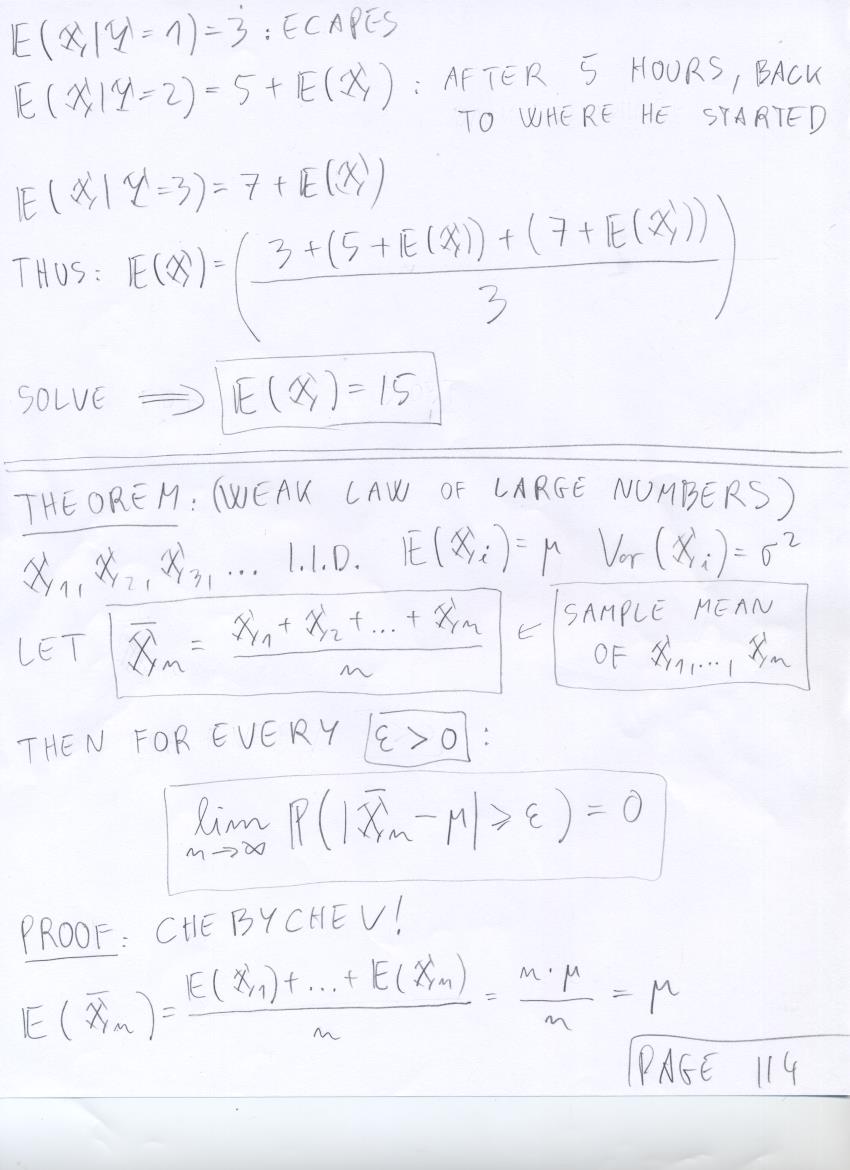 𝔼(X|Y=1)=3 : ECAPES
𝔼(X|Y=2)=5+𝔼(X) : AFTER 5 HOURS, BACK
TO WHERE HE STARTED
𝔼(X|Y=3)=7+𝔼(X)
THUS: 𝔼(X)=((3+(5+𝔼(X))+(7+𝔼(X)))/3)
SOLVE ⟹ 𝔼(X)=15
THEOREM: (WEAK LAW OF LARGE NUMBERS)
X₁, X₂, X₃, ... I.I.D. 𝔼(Xᵢ)=μ Var(Xᵢ)=σ²
LET X̄ₙ = (X₁+X₂+...+Xₙ)/n ← SAMPLE MEAN
OF X₁,...,Xₙ
THEN FOR EVERY ε>0 :
lim n→∞ ℙ(|X̄ₙ-μ|⩾ε)=0
PROOF: CHEBYCHEV!
𝔼(X̄ₙ)=(𝔼(X₁)+...+𝔼(Xₙ))/n = (n·μ)/n = μ
PAGE 114